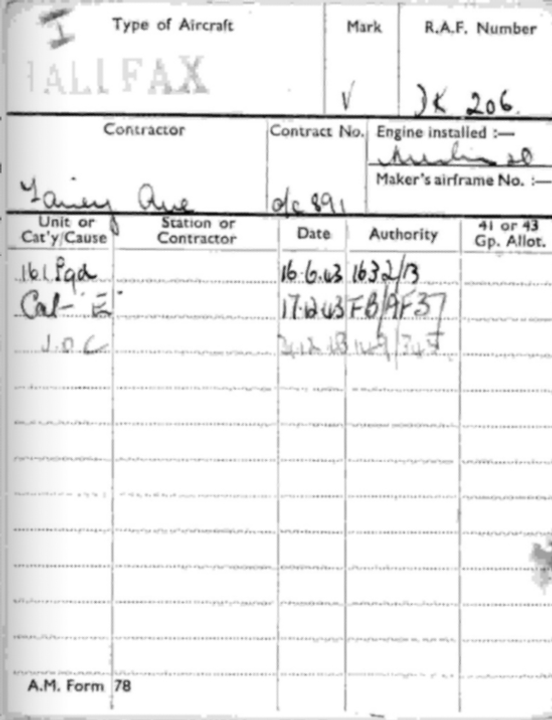 Type of Aircraft Mark R.A.F. Number
HALIFAX V DK 206.
Contractor Contract No. Engine installed :—
Merlin 20
Maker's airframe No. :—
Fairey Ave c/c 891
Unit or Cat'y/Cause Station or Contractor Date Authority 41 or 43 Gp. Allot.
161 Sqd 16.6.43 1632/13
Cat "E" 17.12.43 FB/AF37
S.O.C
A.M. Form 78